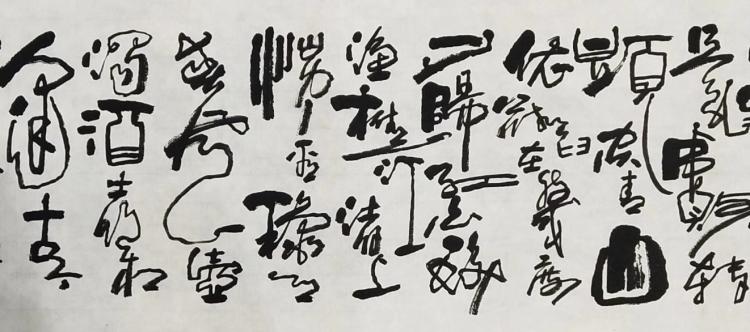 是非成敗轉
頭空青山
依舊在幾度
夕陽紅白髮
漁樵江渚上
慣看秋月
春風一壺
濁酒喜相
逢古今